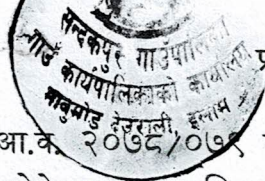 सन्दकपुर गाउँपालिका
गाउँ कार्यपालिकाको कार्यालय
माबुमोड देउराली, इलाम
प्र
आ.व. २०७८/०७९